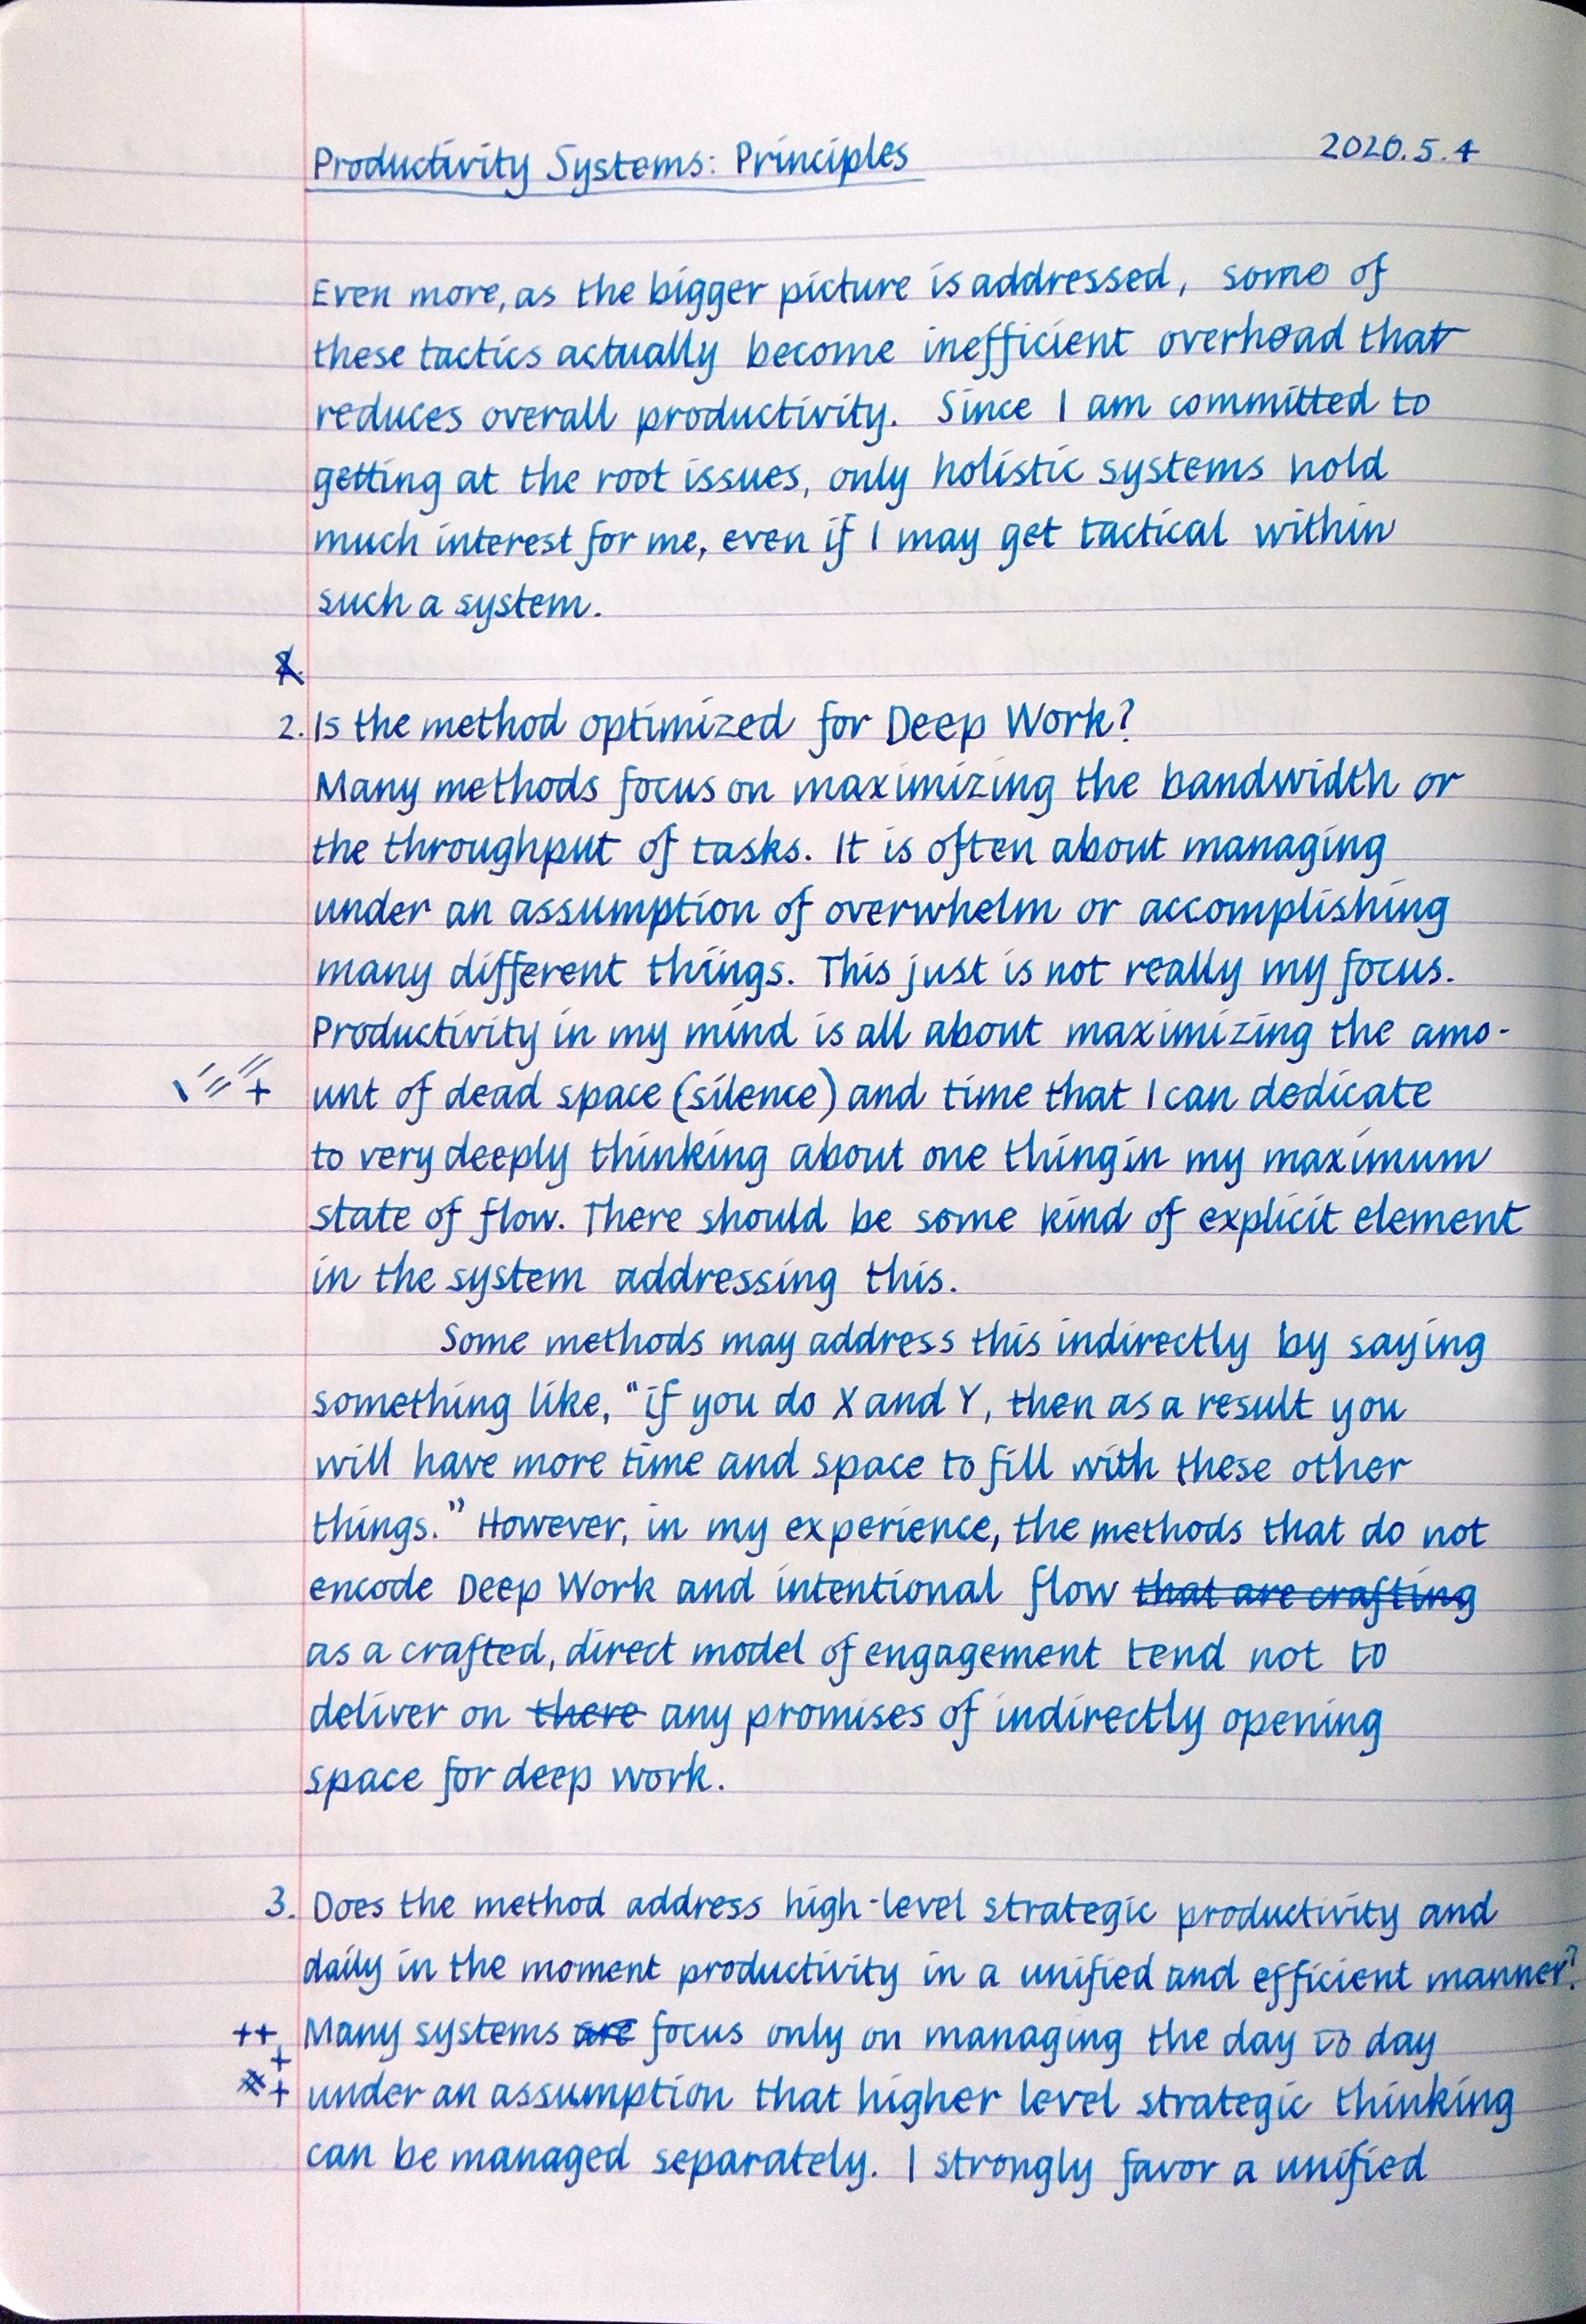 Productivity Systems: Principles 2020.5.4
Even more, as the bigger picture is addressed, some of
these tactics actually become inefficient overhead that
reduces overall productivity. Since I am committed to
getting at the root issues, only holistic systems hold
much interest for me, even if I may get tactical within
such a system.
2. Is the method optimized for Deep Work?
Many methods focus on maximizing the bandwidth or
the throughput of tasks. It is often about managing
under an assumption of overwhelm or accomplishing
many different things. This just is not really my focus.
Productivity in my mind is all about maximizing the amo-
unt of dead space (silence) and time that I can dedicate
to very deeply thinking about one thing in my maximum
state of flow. There should be some kind of explicit element
in the system addressing this.
Some methods may address this indirectly by saying
something like, "if you do X and Y, then as a result you
will have more time and space to fill with these other
things." However, in my experience, the methods that do not
encode Deep Work and intentional flow that are crafting
as a crafted, direct model of engagement tend not to
deliver on there any promises of indirectly opening
space for deep work.
3. Does the method address high-level strategic productivity and
daily in the moment productivity in a unified and efficient manner?
++ Many systems are focus only on managing the day to day
+
+ under an assumption that higher level strategic thinking
can be managed separately. I strongly favor a unified